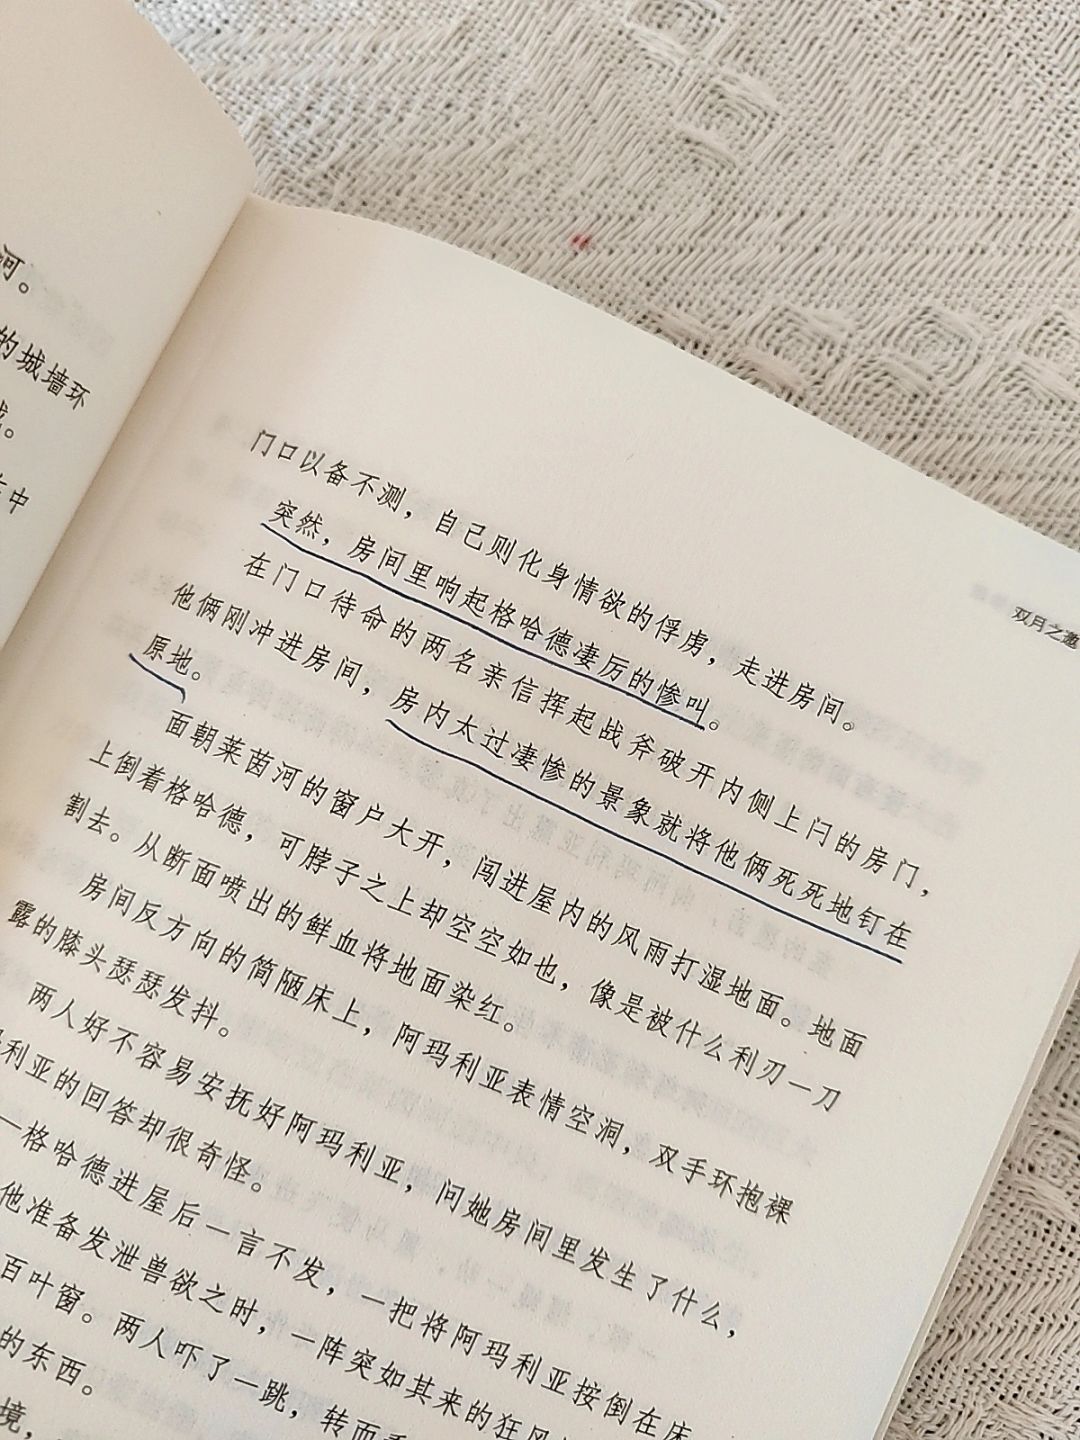 河。
的城墙环
中
双月之
门口以备不测，自己则化身情欲的俘虏，走进房间。
突然，房间里响起格哈德凄厉的惨叫。
在门口待命的两名亲信挥起战斧破开内侧上闩的房门，
他俩刚冲进房间，房内太过凄惨的景象就将他俩死死地钉在
原地。
面朝莱茵河的窗户大开，闯进屋内的风雨打湿地面。地面
上倒着格哈德，可脖子之上却空空如也，像是被什么利刃一刀
割去。从断面喷出的鲜血将地面染红。
房间反方向的简陋床上，阿玛利亚表情空洞，双手环抱裸
露的膝头瑟瑟发抖。
两人好不容易安抚好阿玛利亚，问她房间里发生了什么，
利亚的回答却很奇怪。
—格哈德进屋后一言不发，一把将阿玛利亚按倒在床
他准备发泄兽欲之时，一阵突如其来的狂风
百叶窗。两人吓了一跳，转而
的东西。
境，